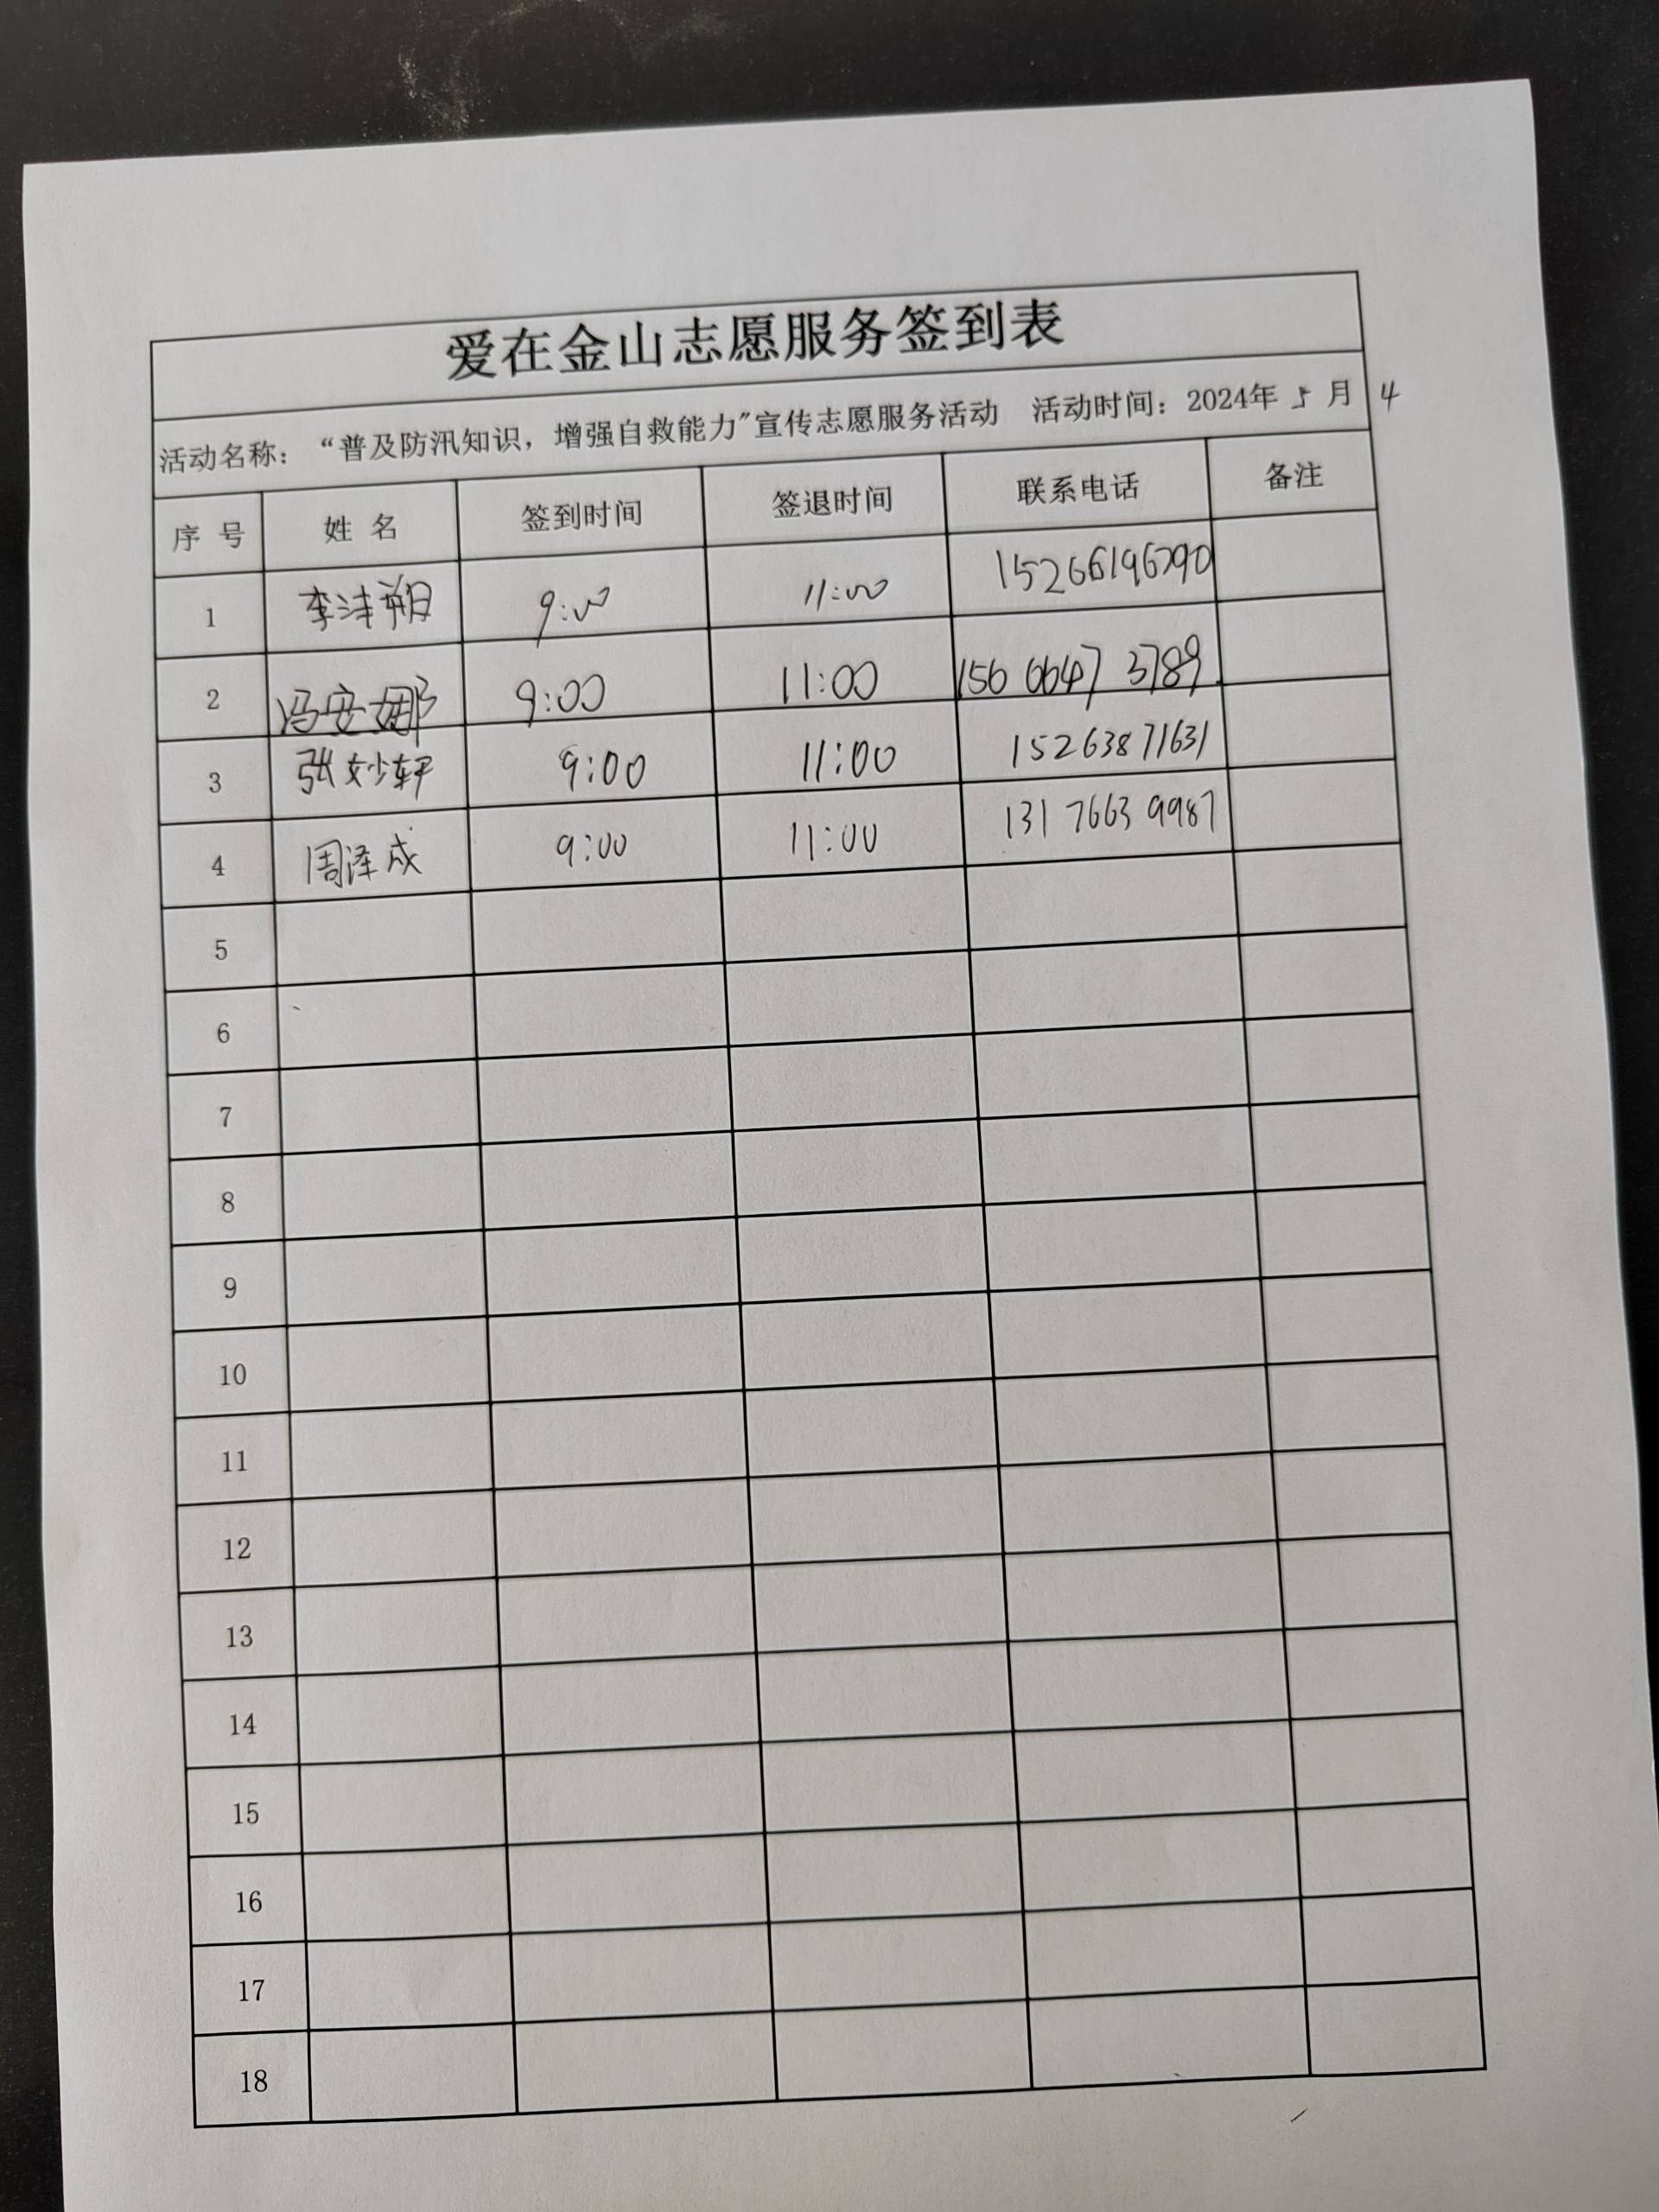 爱在金山志愿服务签到表
活动名称：“普及防汛知识，增强自救能力”宣传志愿服务活动 活动时间：2024年 5 月 4
序 号 姓 名 签到时间 签退时间 联系电话 备注
1 李沣朔 9:00 11:00 15266196790
2 冯安娜 9:00 11:00 156 6647 3789
3 张妙轩 9:00 11:00 15263871631
4 周泽成 9:00 11:00 131 7663 9987
5
6
7
8
9
10
11
12
13
14
15
16
17
18